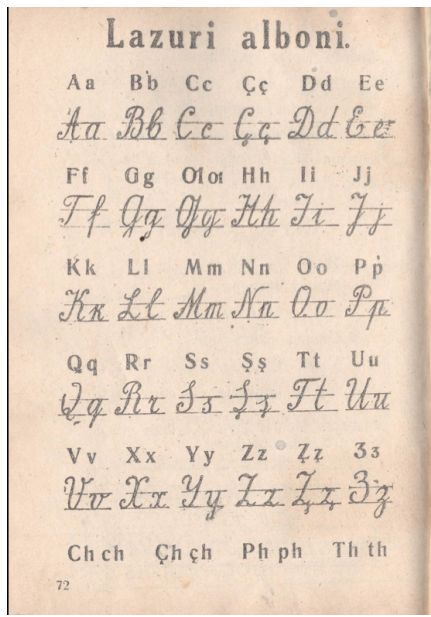 Lazuri alboni.
Aa Bb Cc Çç Dd Ee
Aa Bb Cc Çç Dd Ee
Ff Gg Ƣƣ Hh Ii Jj
Ff Gg Ƣƣ Hh Ii Jj
Kk Ll Mm Nn Oo Pp
Kk Ll Mm Nn Oo Pp
Qq Rr Ss Şş Tt Uu
Qq Rr Ss Şş Tt Uu
Vv Xx Yy Zz Z̧z̧ Ʒʒ
Vv Xx Yy Zz Z̧z̧ Ʒʒ
Ch ch Çh çh Ph ph Th th
72